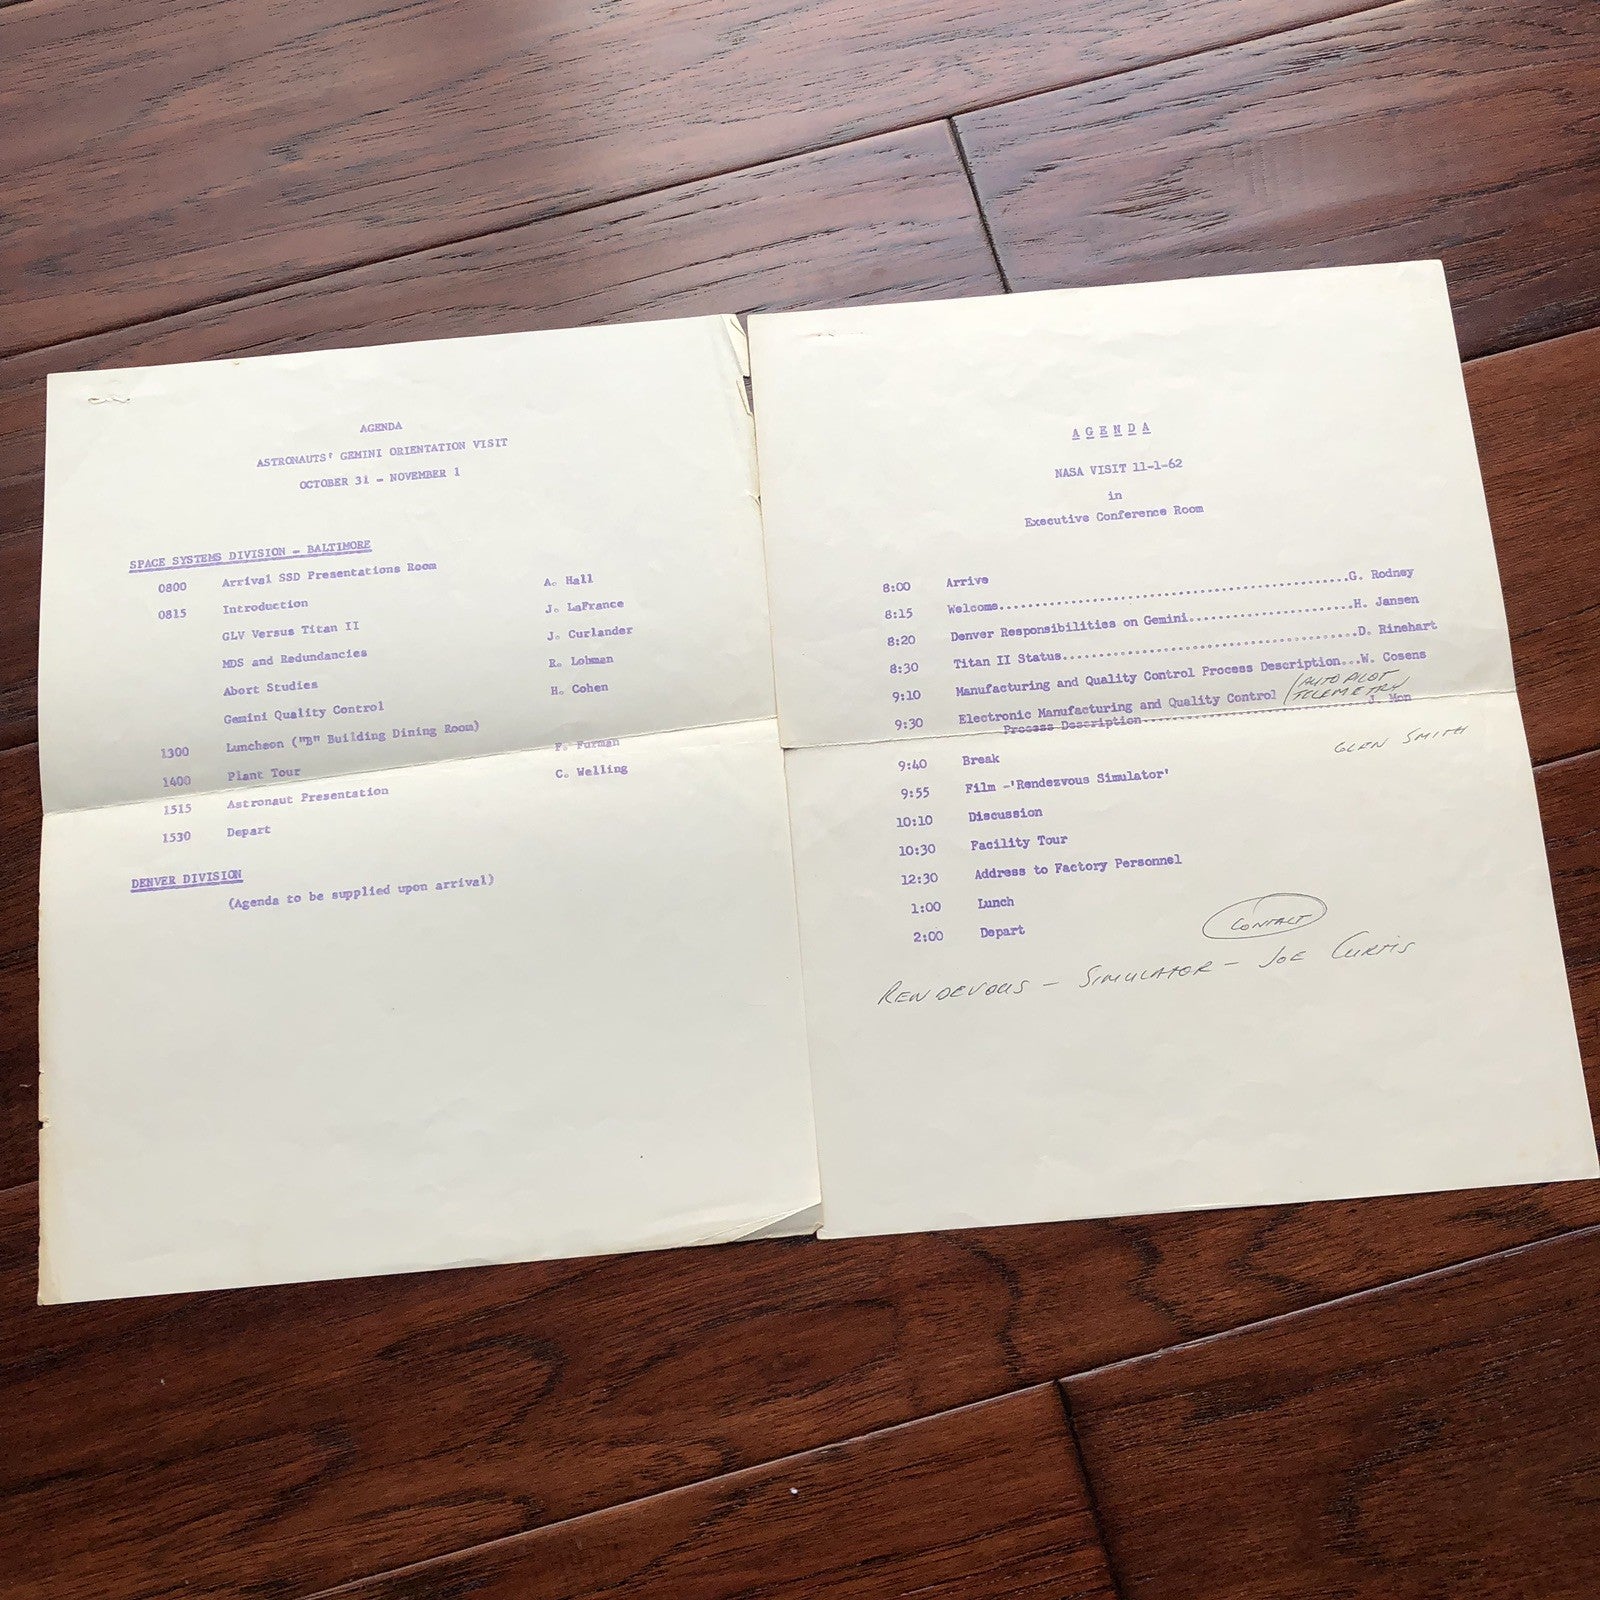 AGENDA
ASTRONAUTS' GEMINI ORIENTATION VISIT
OCTOBER 31 - NOVEMBER 1
SPACE SYSTEMS DIVISION - BALTIMORE
0800 Arrival SSD Presentations Room
0815 Introduction A. Hall
GLV Versus Titan II J. LaFrance
MDS and Redundancies J. Curlander
Abort Studies R. Lohman
Gemini Quality Control H. Cohen
1300 Luncheon ("B" Building Dining Room)
1400 Plant Tour F. Furman
1515 Astronaut Presentation C. Welling
1530 Depart
DENVER DIVISION
(Agenda to be supplied upon arrival)
AGENDA
NASA VISIT 11-1-62
in
Executive Conference Room
8:00 Arrive
8:15 Welcome...G. Rodney
8:20 Denver Responsibilities on Gemini...H. Jansen
8:30 Titan II Status...D. Rinehart
9:10 Manufacturing and Quality Control Process Description...W. Cosens
9:30 Electronic Manufacturing and Quality Control (AUTOPILOT
TELEMETRY
Process Description...J. Mon
GLEN SMITH
9:40 Break
9:55 Film -'Rendezvous Simulator'
10:10 Discussion
10:30 Facility Tour
12:30 Address to Factory Personnel
1:00 Lunch
2:00 Depart
CONTACT
RENDEVOUS - SIMULATOR - JOE CURTIS